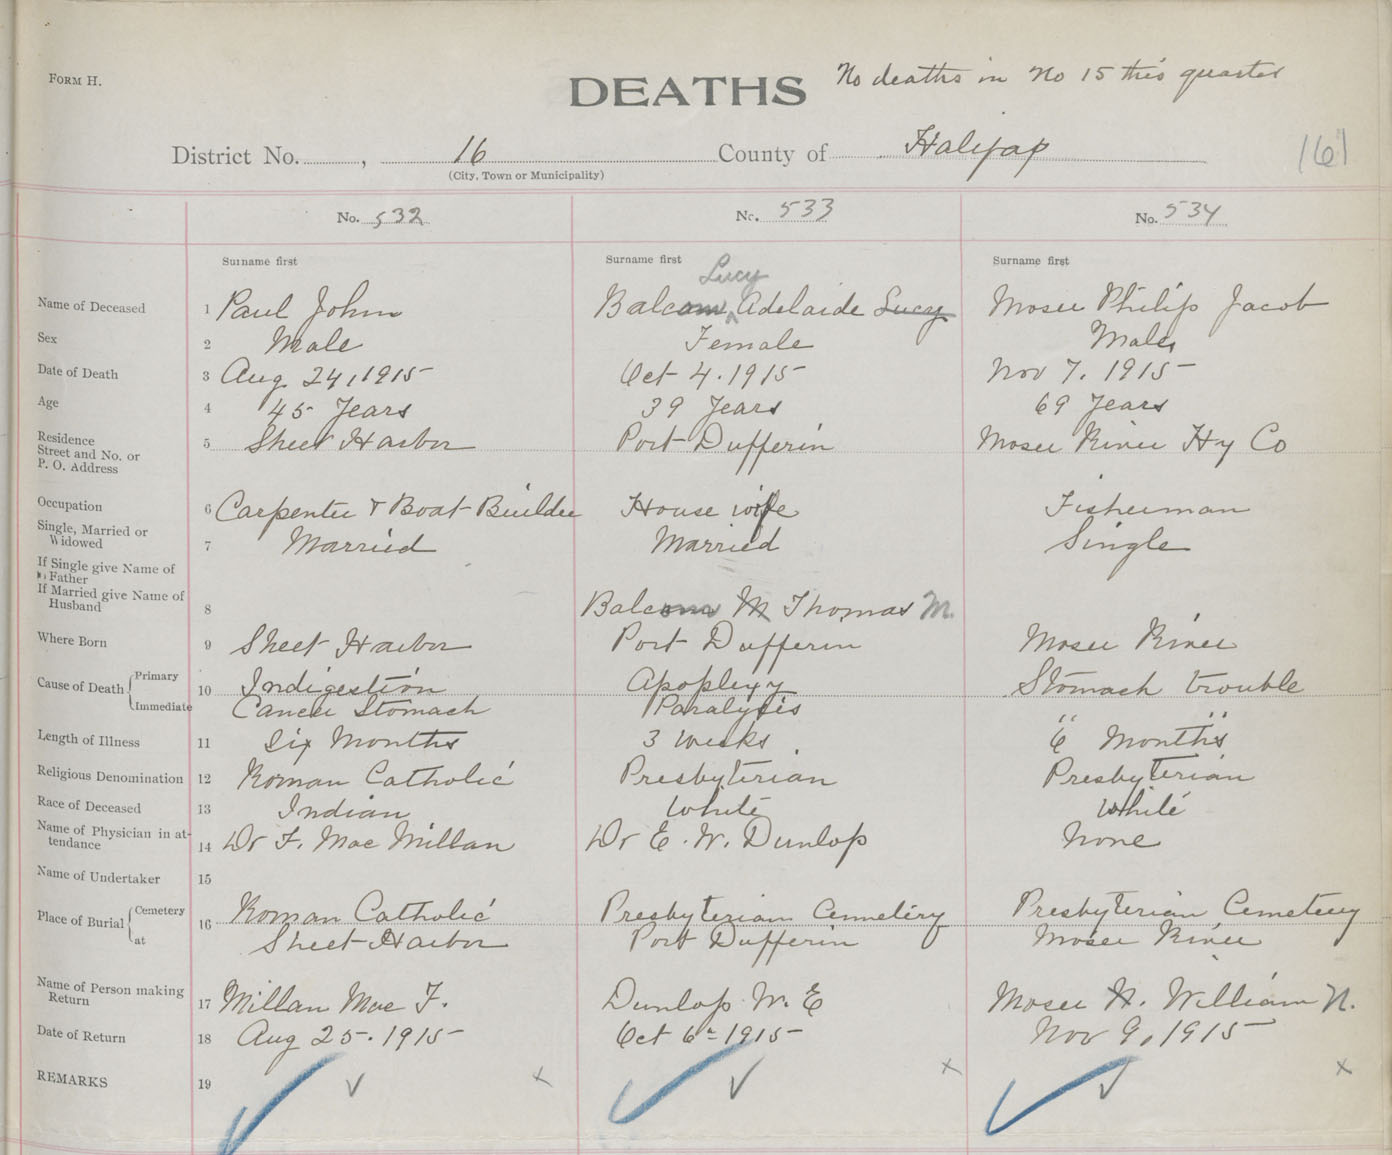 FORM H.
DEATHS No deaths in No 15 this quarter
District No. , 16 County of Halifax
161
(City, Town or Municipality)
No. 532 No. 533 No. 534
Surname first Surname first Surname first
Lucy
Name of Deceased 1 Paul John Balcom Adelaide Lucy Moser Philip Jacob
Sex 2 Male Female Male
Date of Death 3 Aug 24, 1915 Oct 4. 1915 Nov 7. 1915
Age 4 45 Years 39 Years 69 Years
Residence Street and No. or P. O. Address 5 Sheet Harbor Port Dufferin Moser River Hx Co
Occupation 6 Carpenter & Boat Builder House wife Fisherman
Single, Married or Widowed 7 Married Married Single
If Single give Name of Father
If Married give Name of Husband 8 Balcom M Thomas M.
Where Born 9 Sheet Harbor Port Dufferin Moser River
Cause of Death Primary 10 Indigestion Apoplexy Stomach trouble
Immediate Cancer Stomach Paralysis " "
Length of Illness 11 Six Months 3 weeks. 6 Months
Religious Denomination 12 Roman Catholic Presbyterian Presbyterian
Race of Deceased 13 Indian White White
Name of Physician in attendance 14 Dr F. Mac Millan Dr E. W. Dunlop None
Name of Undertaker 15
Place of Burial Cemetery 16 Roman Catholic Presbyterian Cemmetery Presbyterian Cemetery
at Sheet Harbor Port Dufferin Moser River
Name of Person making Return 17 Millan Mac F. Dunlop W. E Moser N. William N.
Date of Return 18 Aug 25. 1915 Oct 6th 1915 Nov 9, 1915
REMARKS 19 ✓ x ✓ x ✓ x